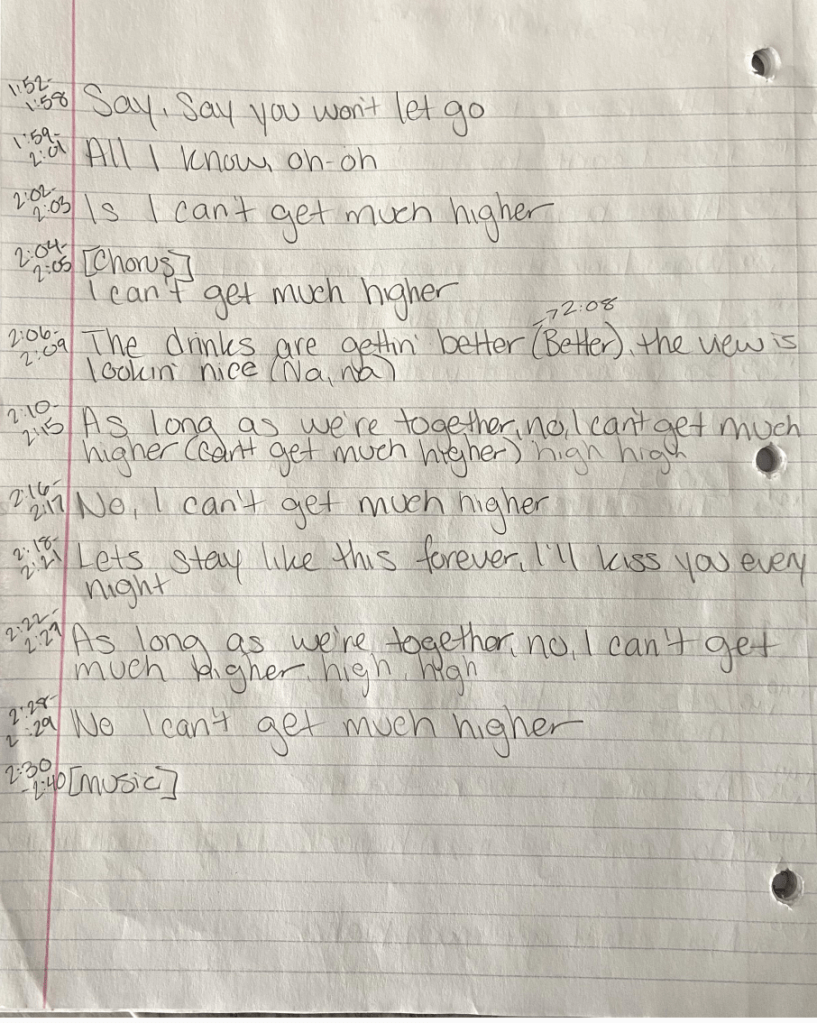 1:52-
1:58 Say, Say you won't let go
1:59-
2:01 All I know, oh-oh
2:02-
2:03 Is I can't get much higher
2:04-
2:05 [Chorus]
I can't get much higher
→2:08
2:06-
2:09 The drinks are gettin' better (Better), the view is
lookin' nice (Na, na)
2:10-
2:15 As long as we're together, no, I can't get much
higher (can't get much higher) high high
2:16-
2:17 No, I can't get much higher
2:18-
2:21 Lets stay like this forever, I'll kiss you every
night
2:22-
2:27 As long as we're together, no, I can't get
much higher, high, high
2:28-
2:29 No I can't get much higher
2:30
-2:40 [music]